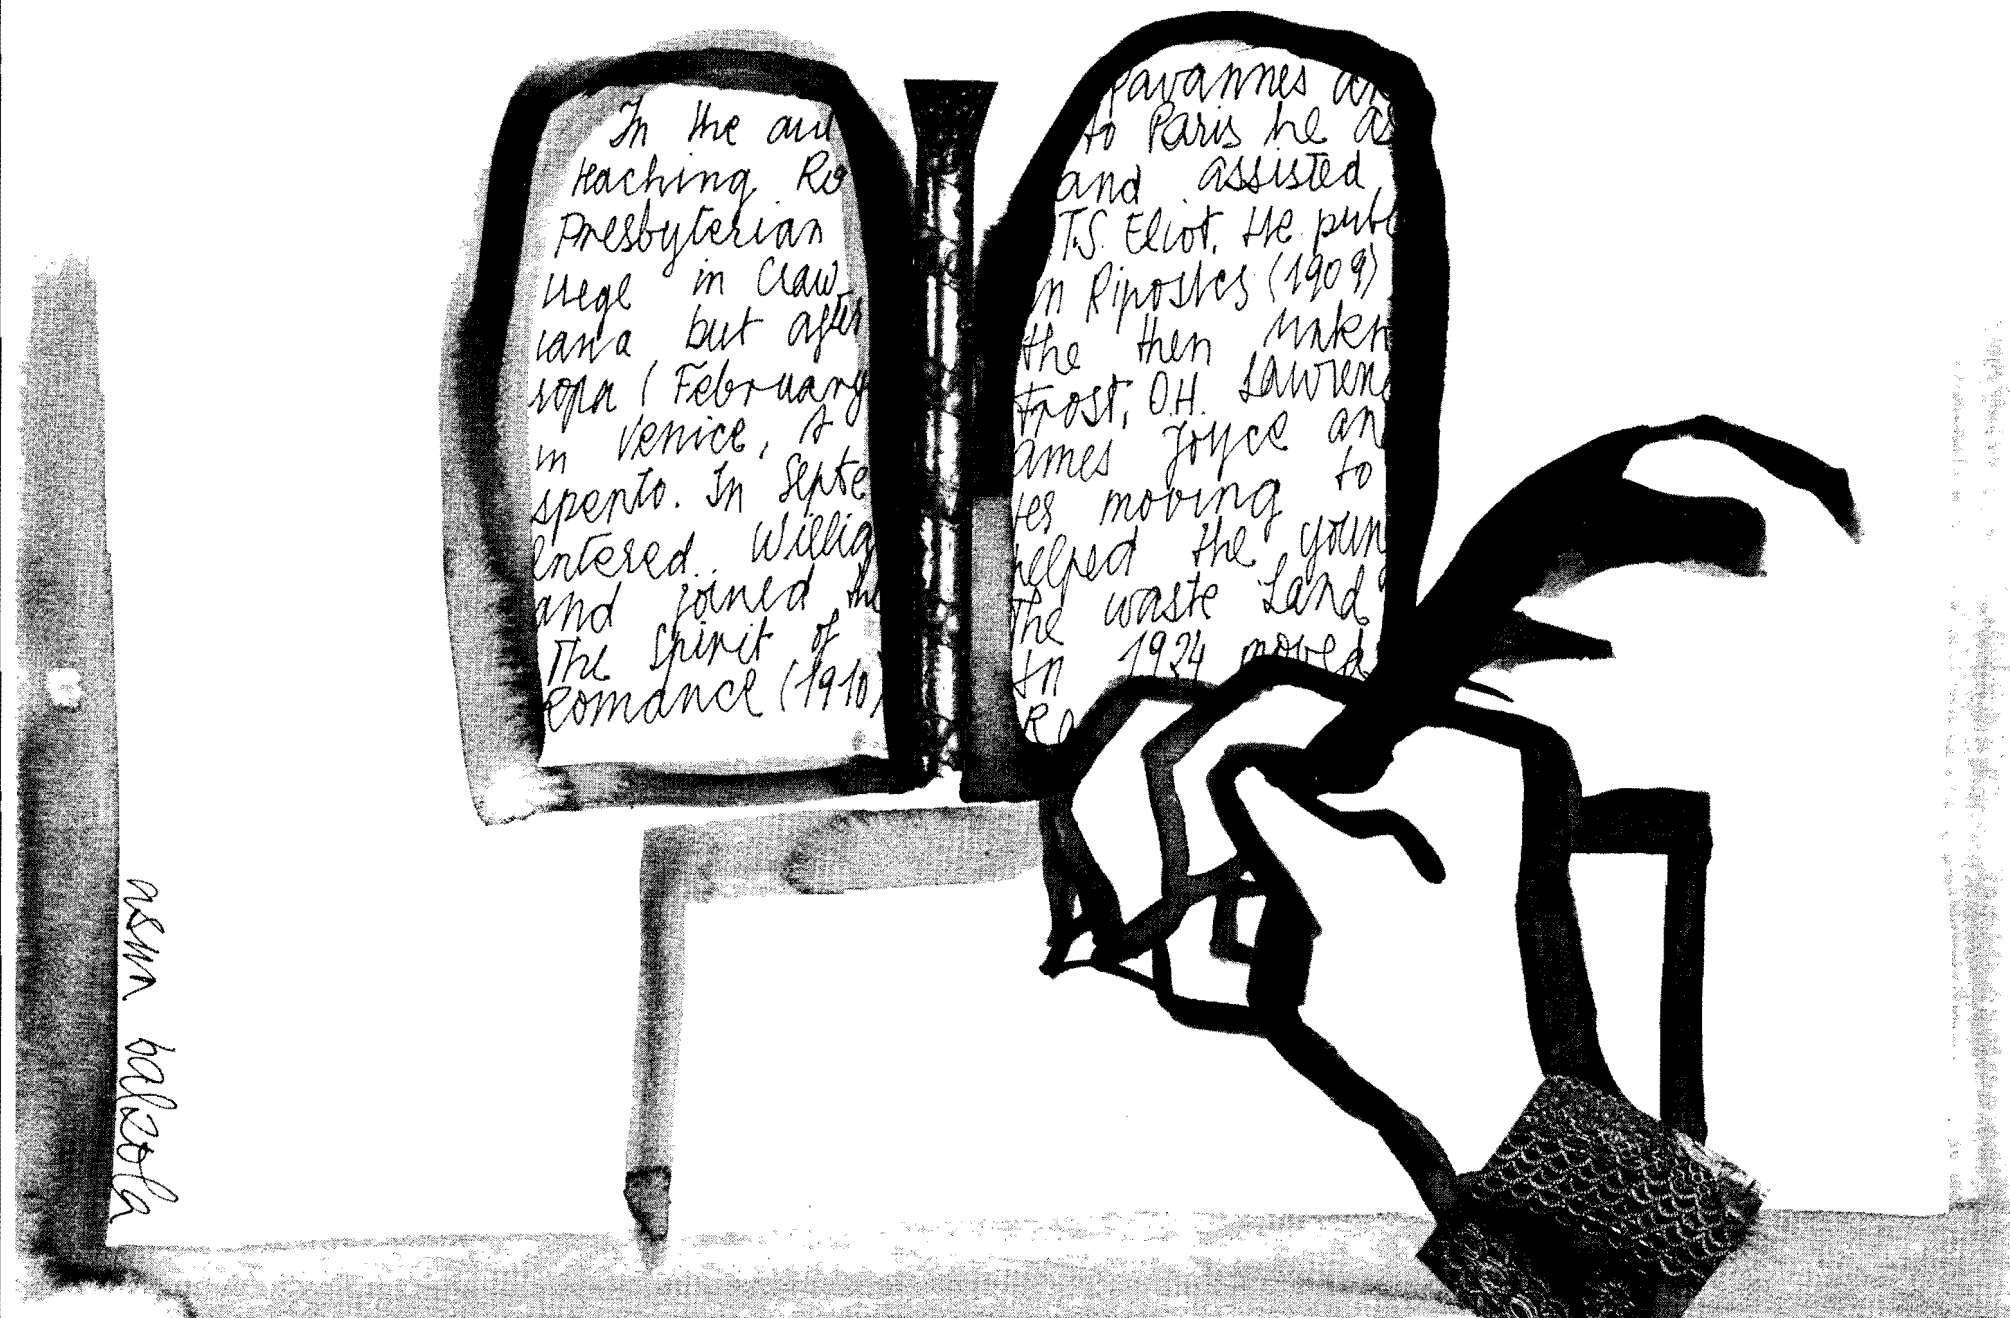 In the aut
teaching Ro
Presbyterian
llege in Craw
iana but after
ropa (February
in Venice, A
spento. In Septe
entered.. Willia
and joined the
The Spirit of
Romance (1910)
Pavannes an
to Paris he as
and assisted
T.S. Eliot. He publ
in Ripostes (1909)
the then unkn
Frost, D.H. Lawrenc
ames Joyce an
tes moving to
helped the young
The waste Land
In 1924 moved
Ra
asun balzola